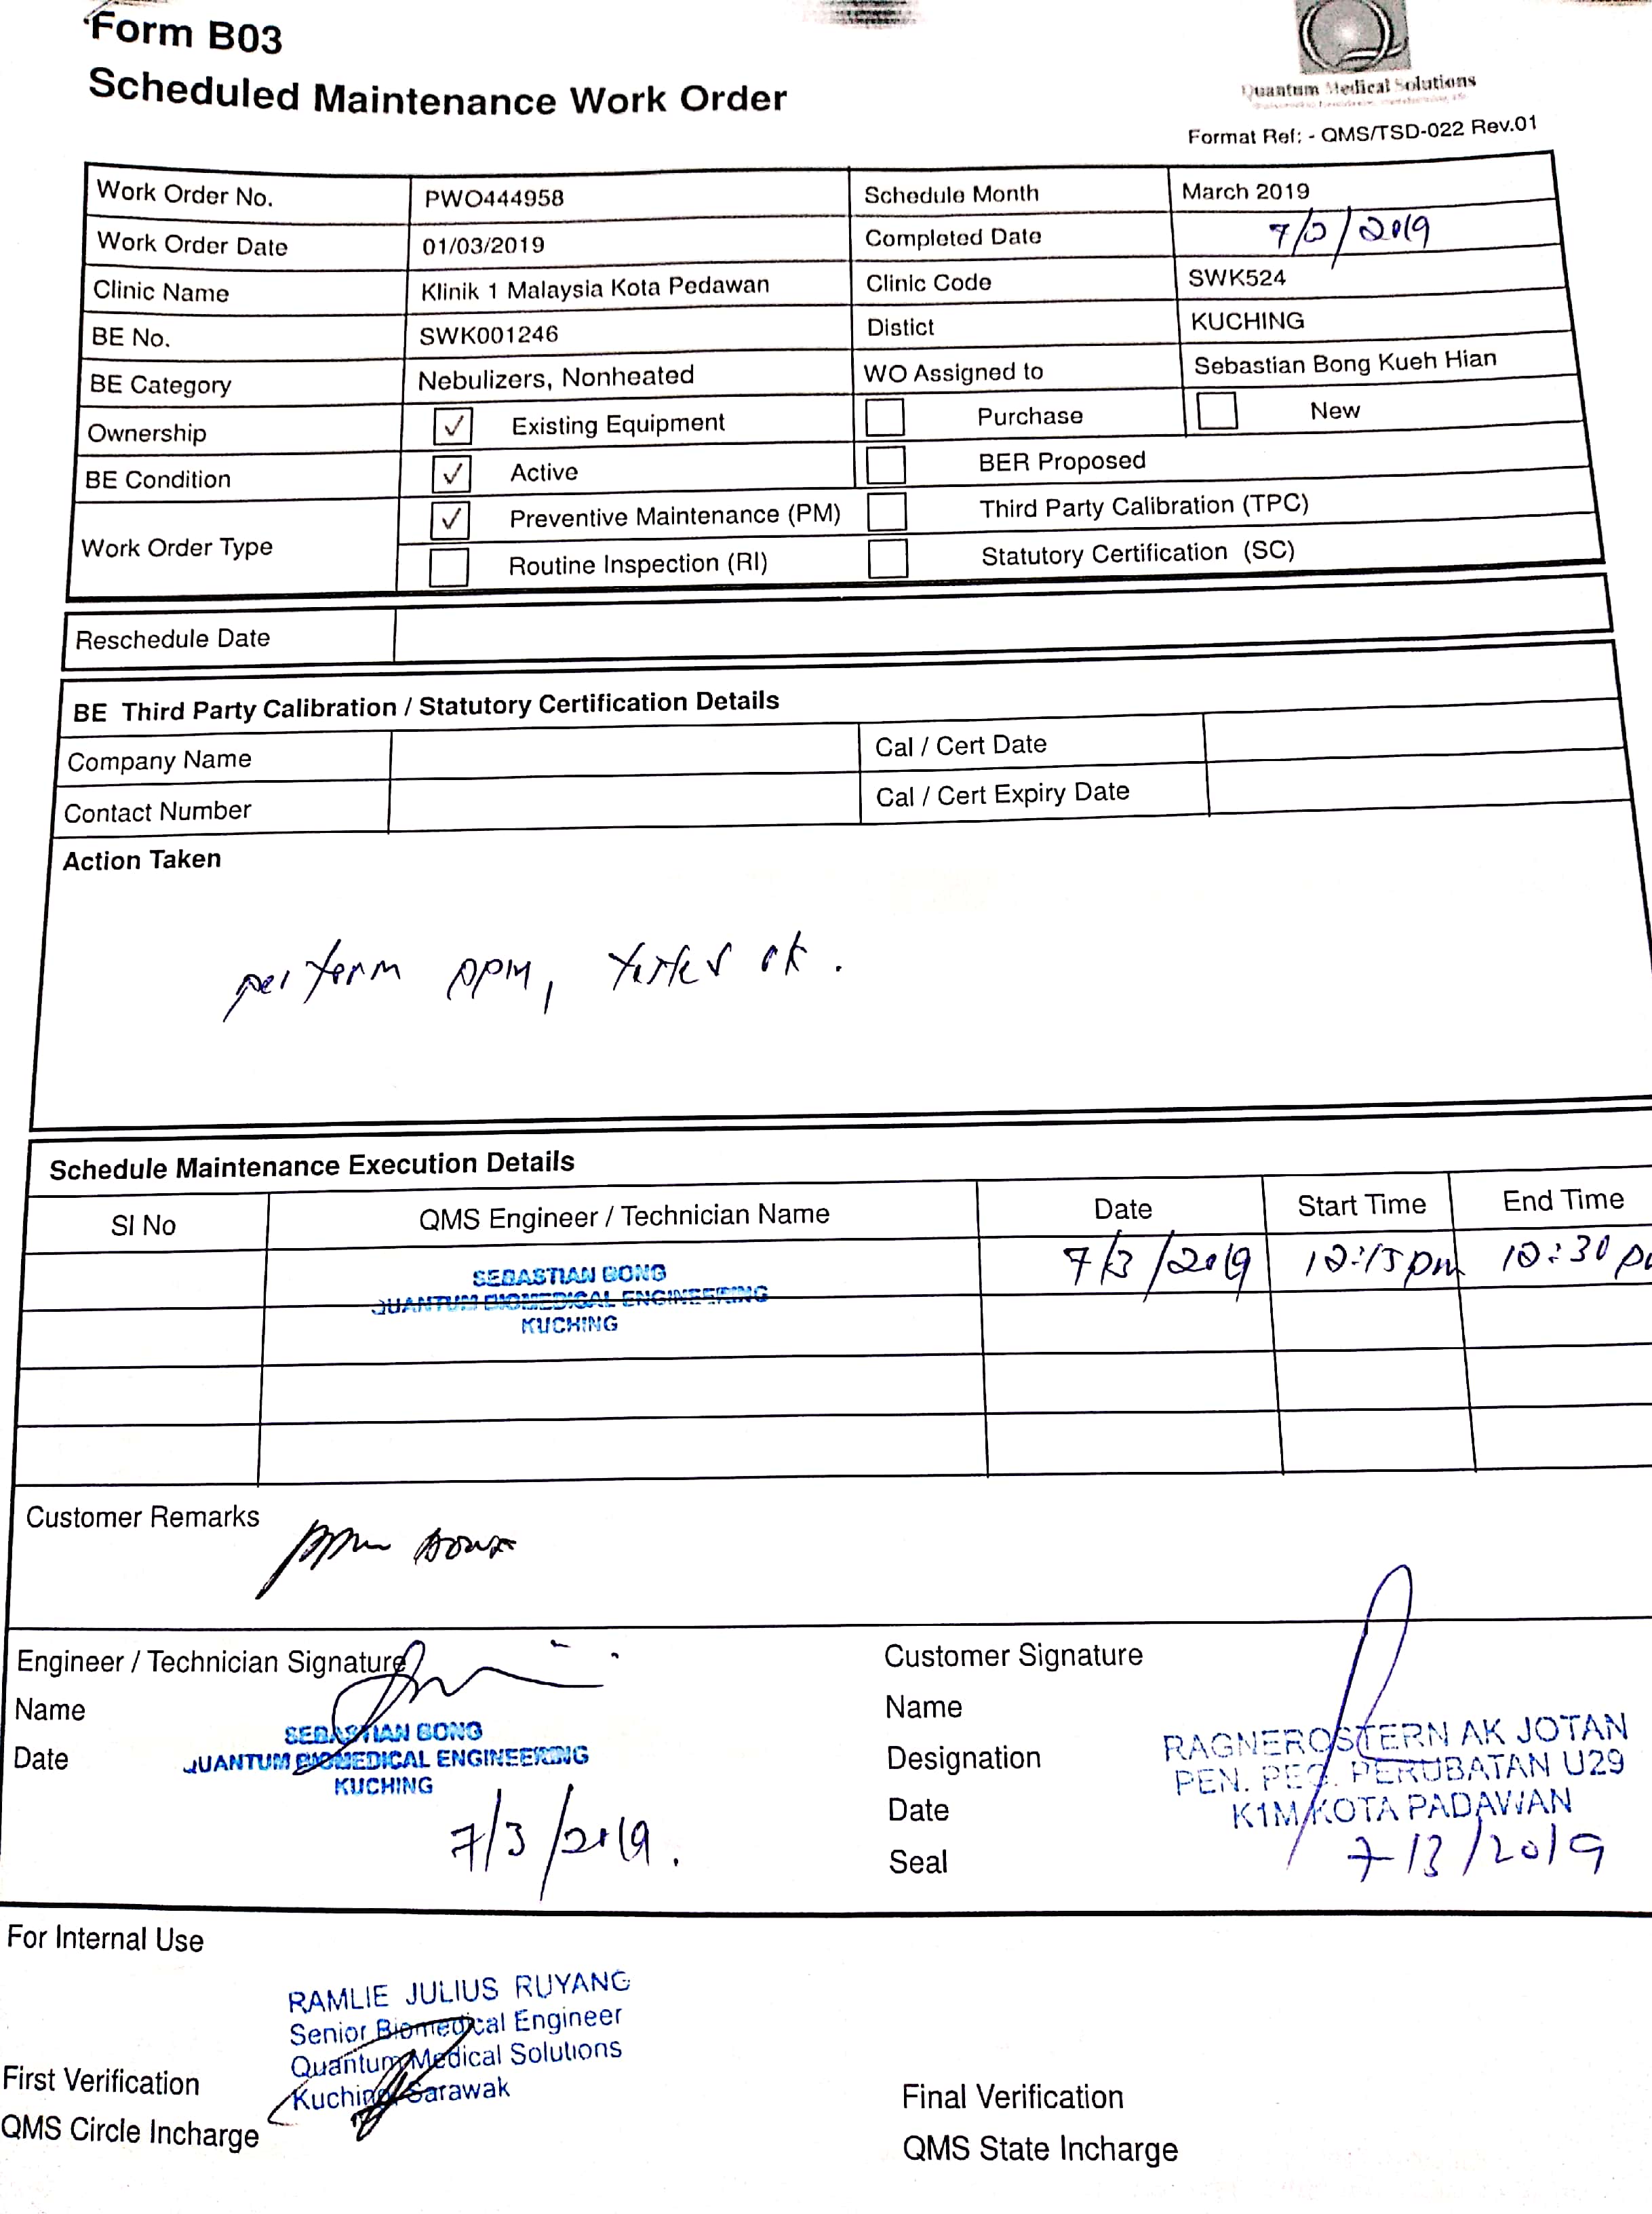 Form B03
Scheduled Maintenance Work Order
Quantum Medical Solutions
Format Ref: - QMS/TSD-022 Rev.01
Work Order No. PWO444958 Schedule Month March 2019
Work Order Date 01/03/2019 Completed Date 7/3/2019
Clinic Name Klinik 1 Malaysia Kota Pedawan Clinic Code SWK524
BE No. SWK001246 Distict KUCHING
BE Category Nebulizers, Nonheated WO Assigned to Sebastian Bong Kueh Hian
Ownership ✓ Existing Equipment Purchase New
BE Condition ✓ Active BER Proposed
Work Order Type ✓ Preventive Maintenance (PM) Third Party Calibration (TPC)
Routine Inspection (RI) Statutory Certification (SC)
Reschedule Date
BE Third Party Calibration / Statutory Certification Details
Company Name Cal / Cert Date
Contact Number Cal / Cert Expiry Date
Action Taken
perform ppm, tested ok.
Schedule Maintenance Execution Details
SI No QMS Engineer / Technician Name Date Start Time End Time
SEBASTIAN BONG 7/3/2019 12:15pm 12:30 p
QUANTUM BIOMEDICAL ENGINEERING
KUCHING
Customer Remarks
ppm done
Engineer / Technician Signature Customer Signature
Name Name
SEBASTIAN BONG RAGNEROSTERN AK JOTAN
Date Designation
QUANTUM BIOMEDICAL ENGINEERING PEN. PEG. PERUBATAN U29
KUCHING K1M KOTA PADAWAN
Date
7/3/2019. 7/3/2019
Seal
For Internal Use
RAMLIE JULIUS RUYANG
Senior Biomedical Engineer
Quantum Medical Solutions
Kuching Sarawak
First Verification Final Verification
QMS Circle Incharge QMS State Incharge